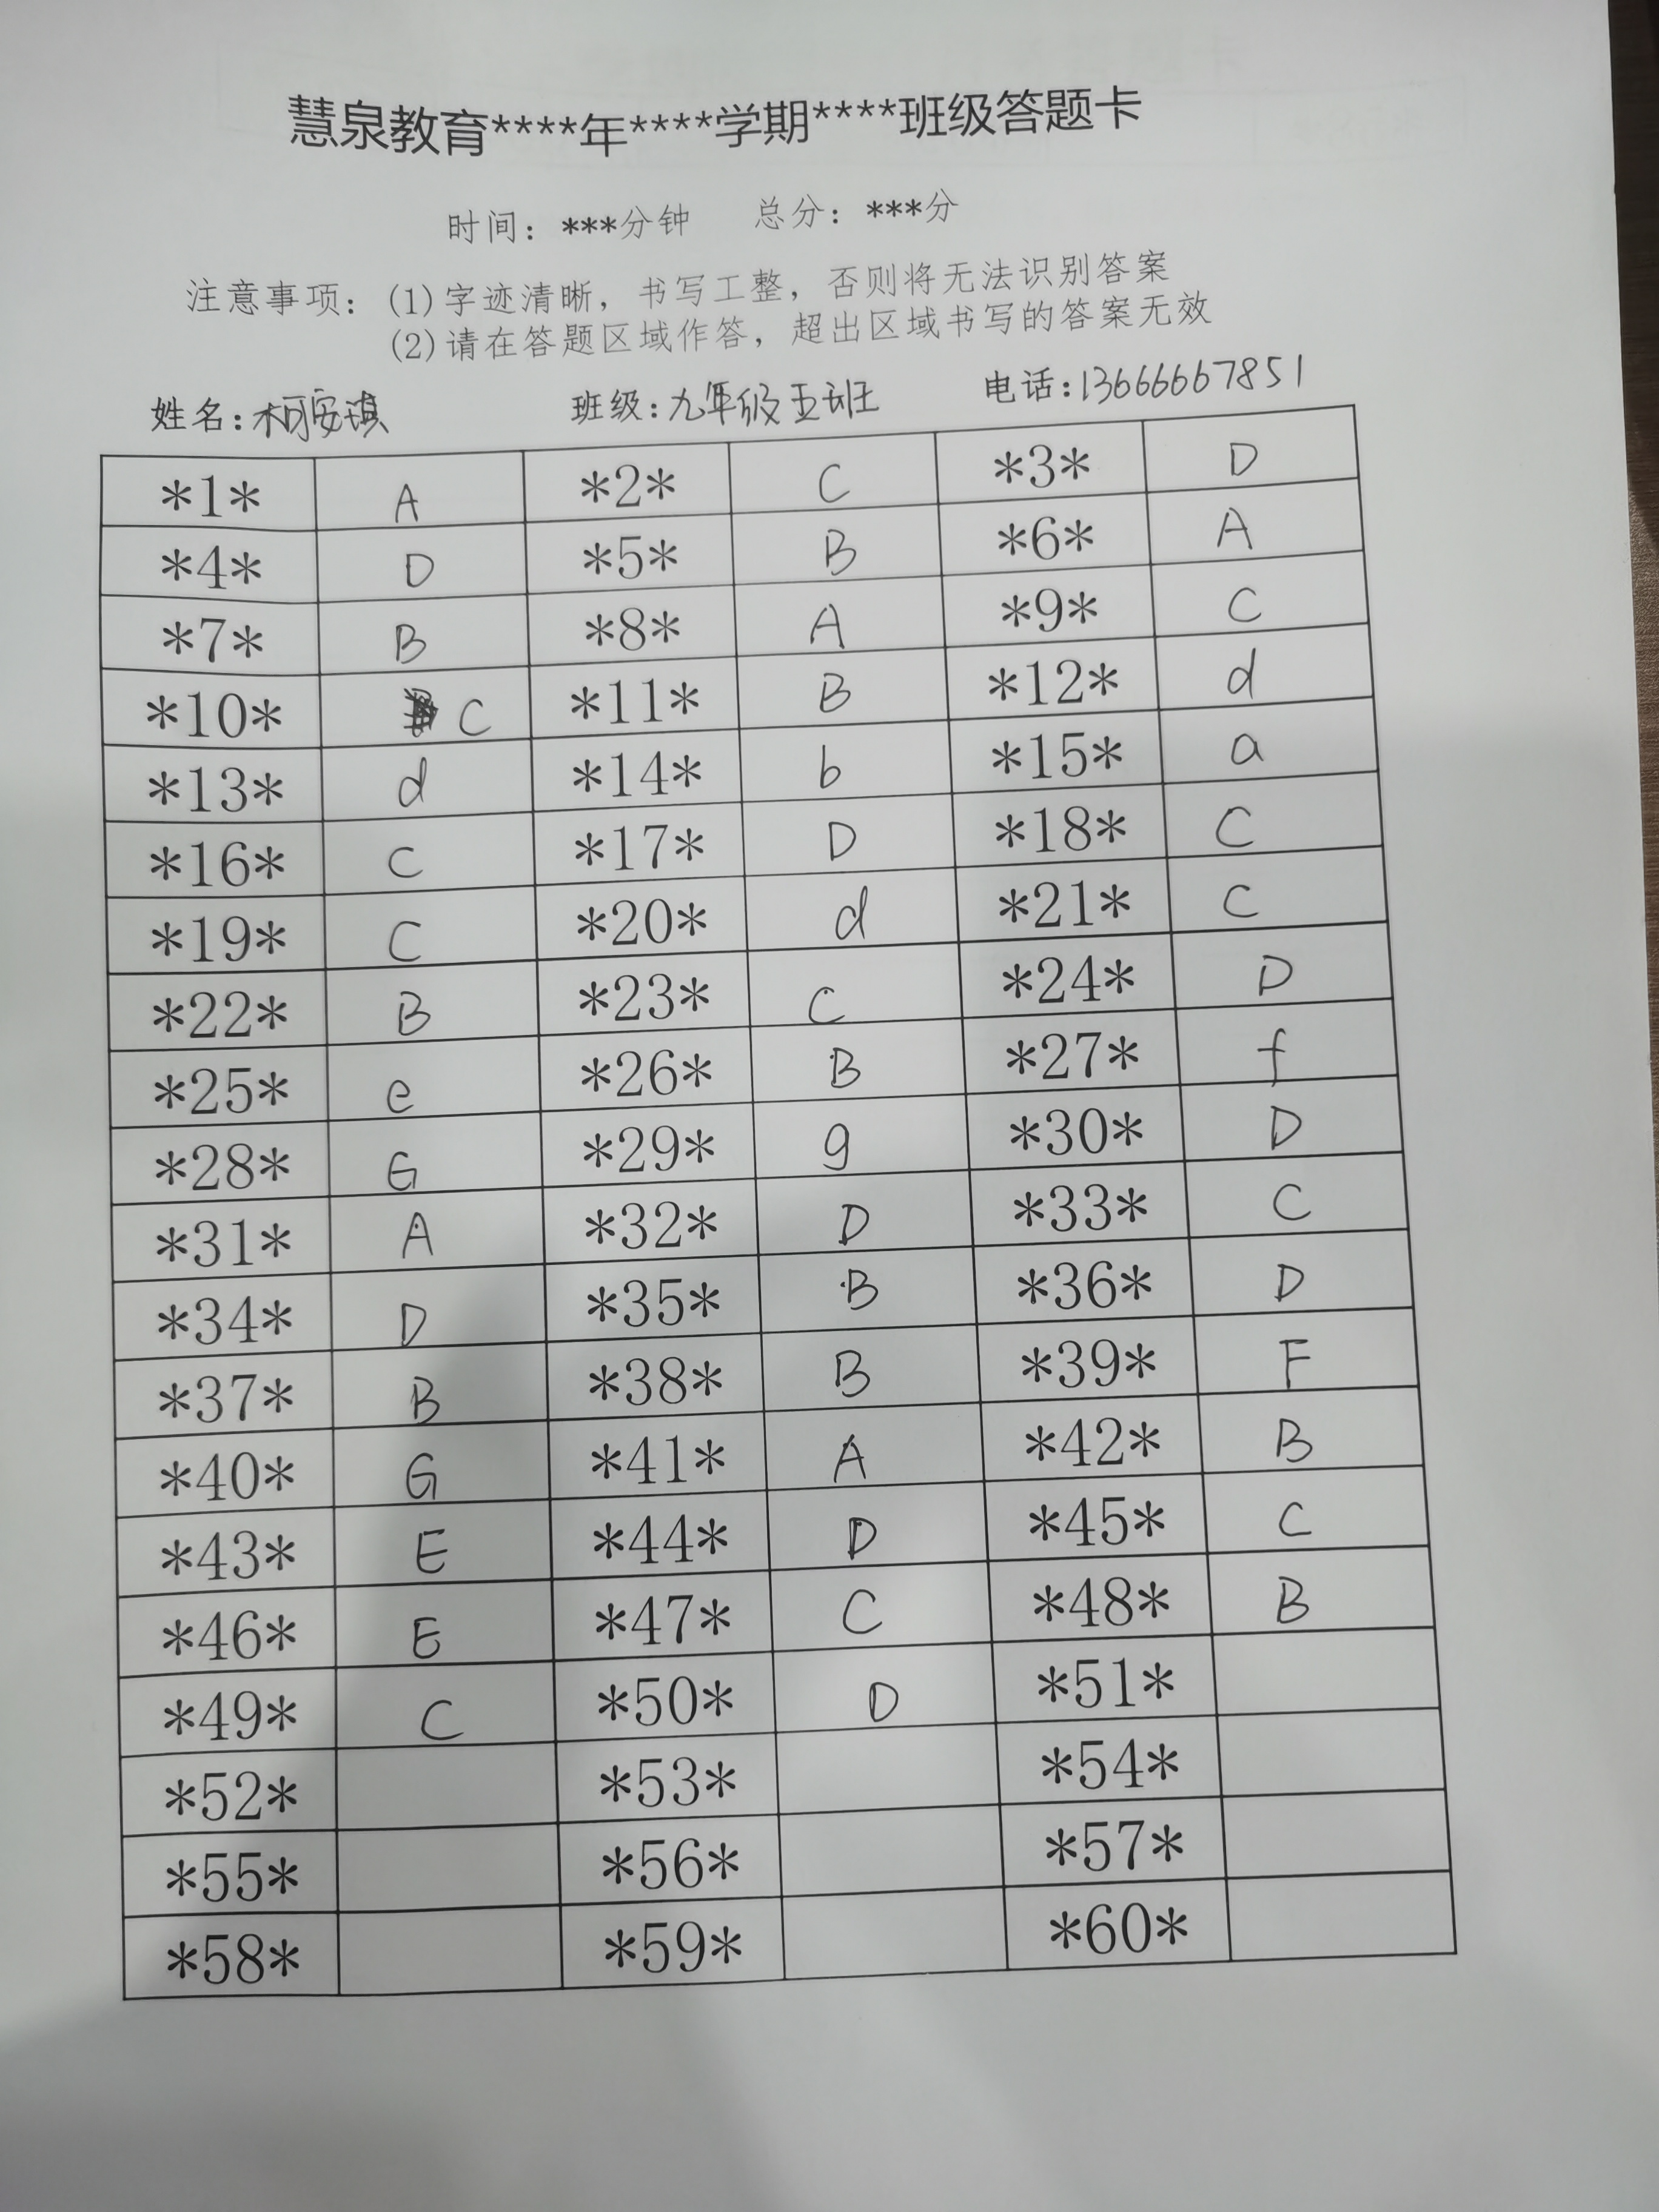 慧泉教育****年****学期****班级答题卡
时间：***分钟 总分：***分
注意事项：(1)字迹清晰，书写工整，否则将无法识别答案
(2)请在答题区域作答，超出区域书写的答案无效
姓名：柯安琪 班级：九年级五班 电话：13666667851
*1* A *2* C *3* D
*4* D *5* B *6* A
*7* B *8* A *9* C
*10* C *11* B *12* d
*13* d *14* b *15* a
*16* C *17* D *18* C
*19* C *20* d *21* C
*22* B *23* C *24* D
*25* e *26* B *27* f
*28* G *29* g *30* D
*31* A *32* D *33* C
*34* D *35* B *36* D
*37* B *38* B *39* F
*40* G *41* A *42* B
*43* E *44* D *45* C
*46* E *47* C *48* B
*49* C *50* D *51*
*52* *53* *54*
*55* *56* *57*
*58* *59* *60*